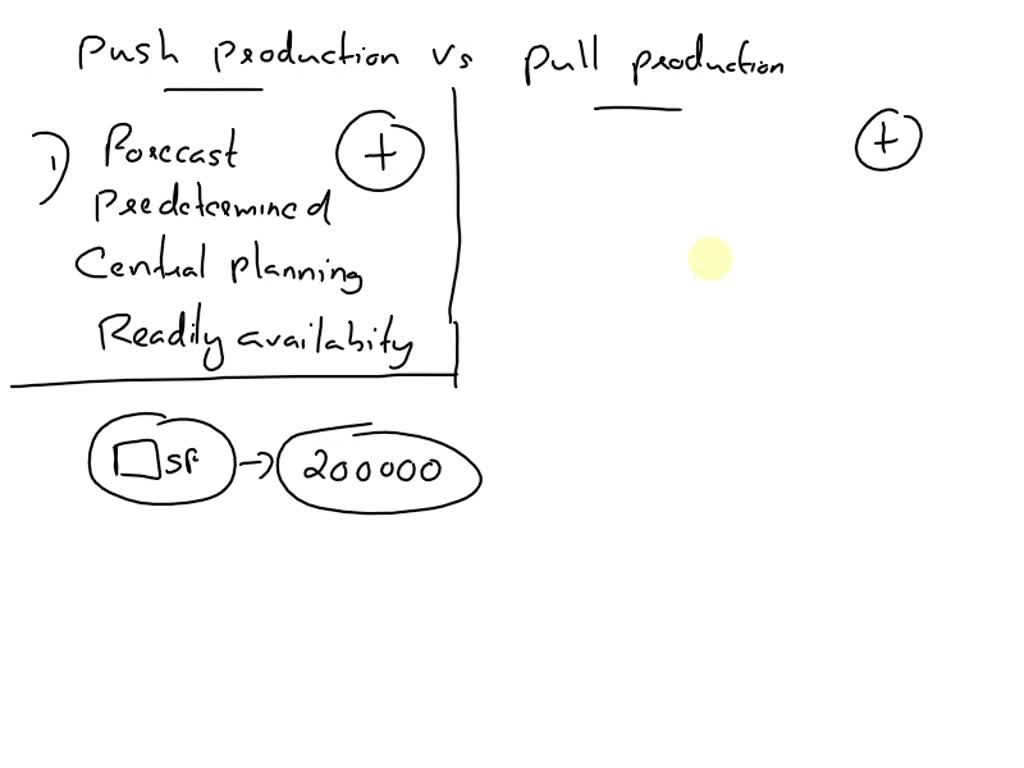 Push production vs pull production
1) Forecast +
+
Predetermined
Central planning
Readily availabity
SF → 200000